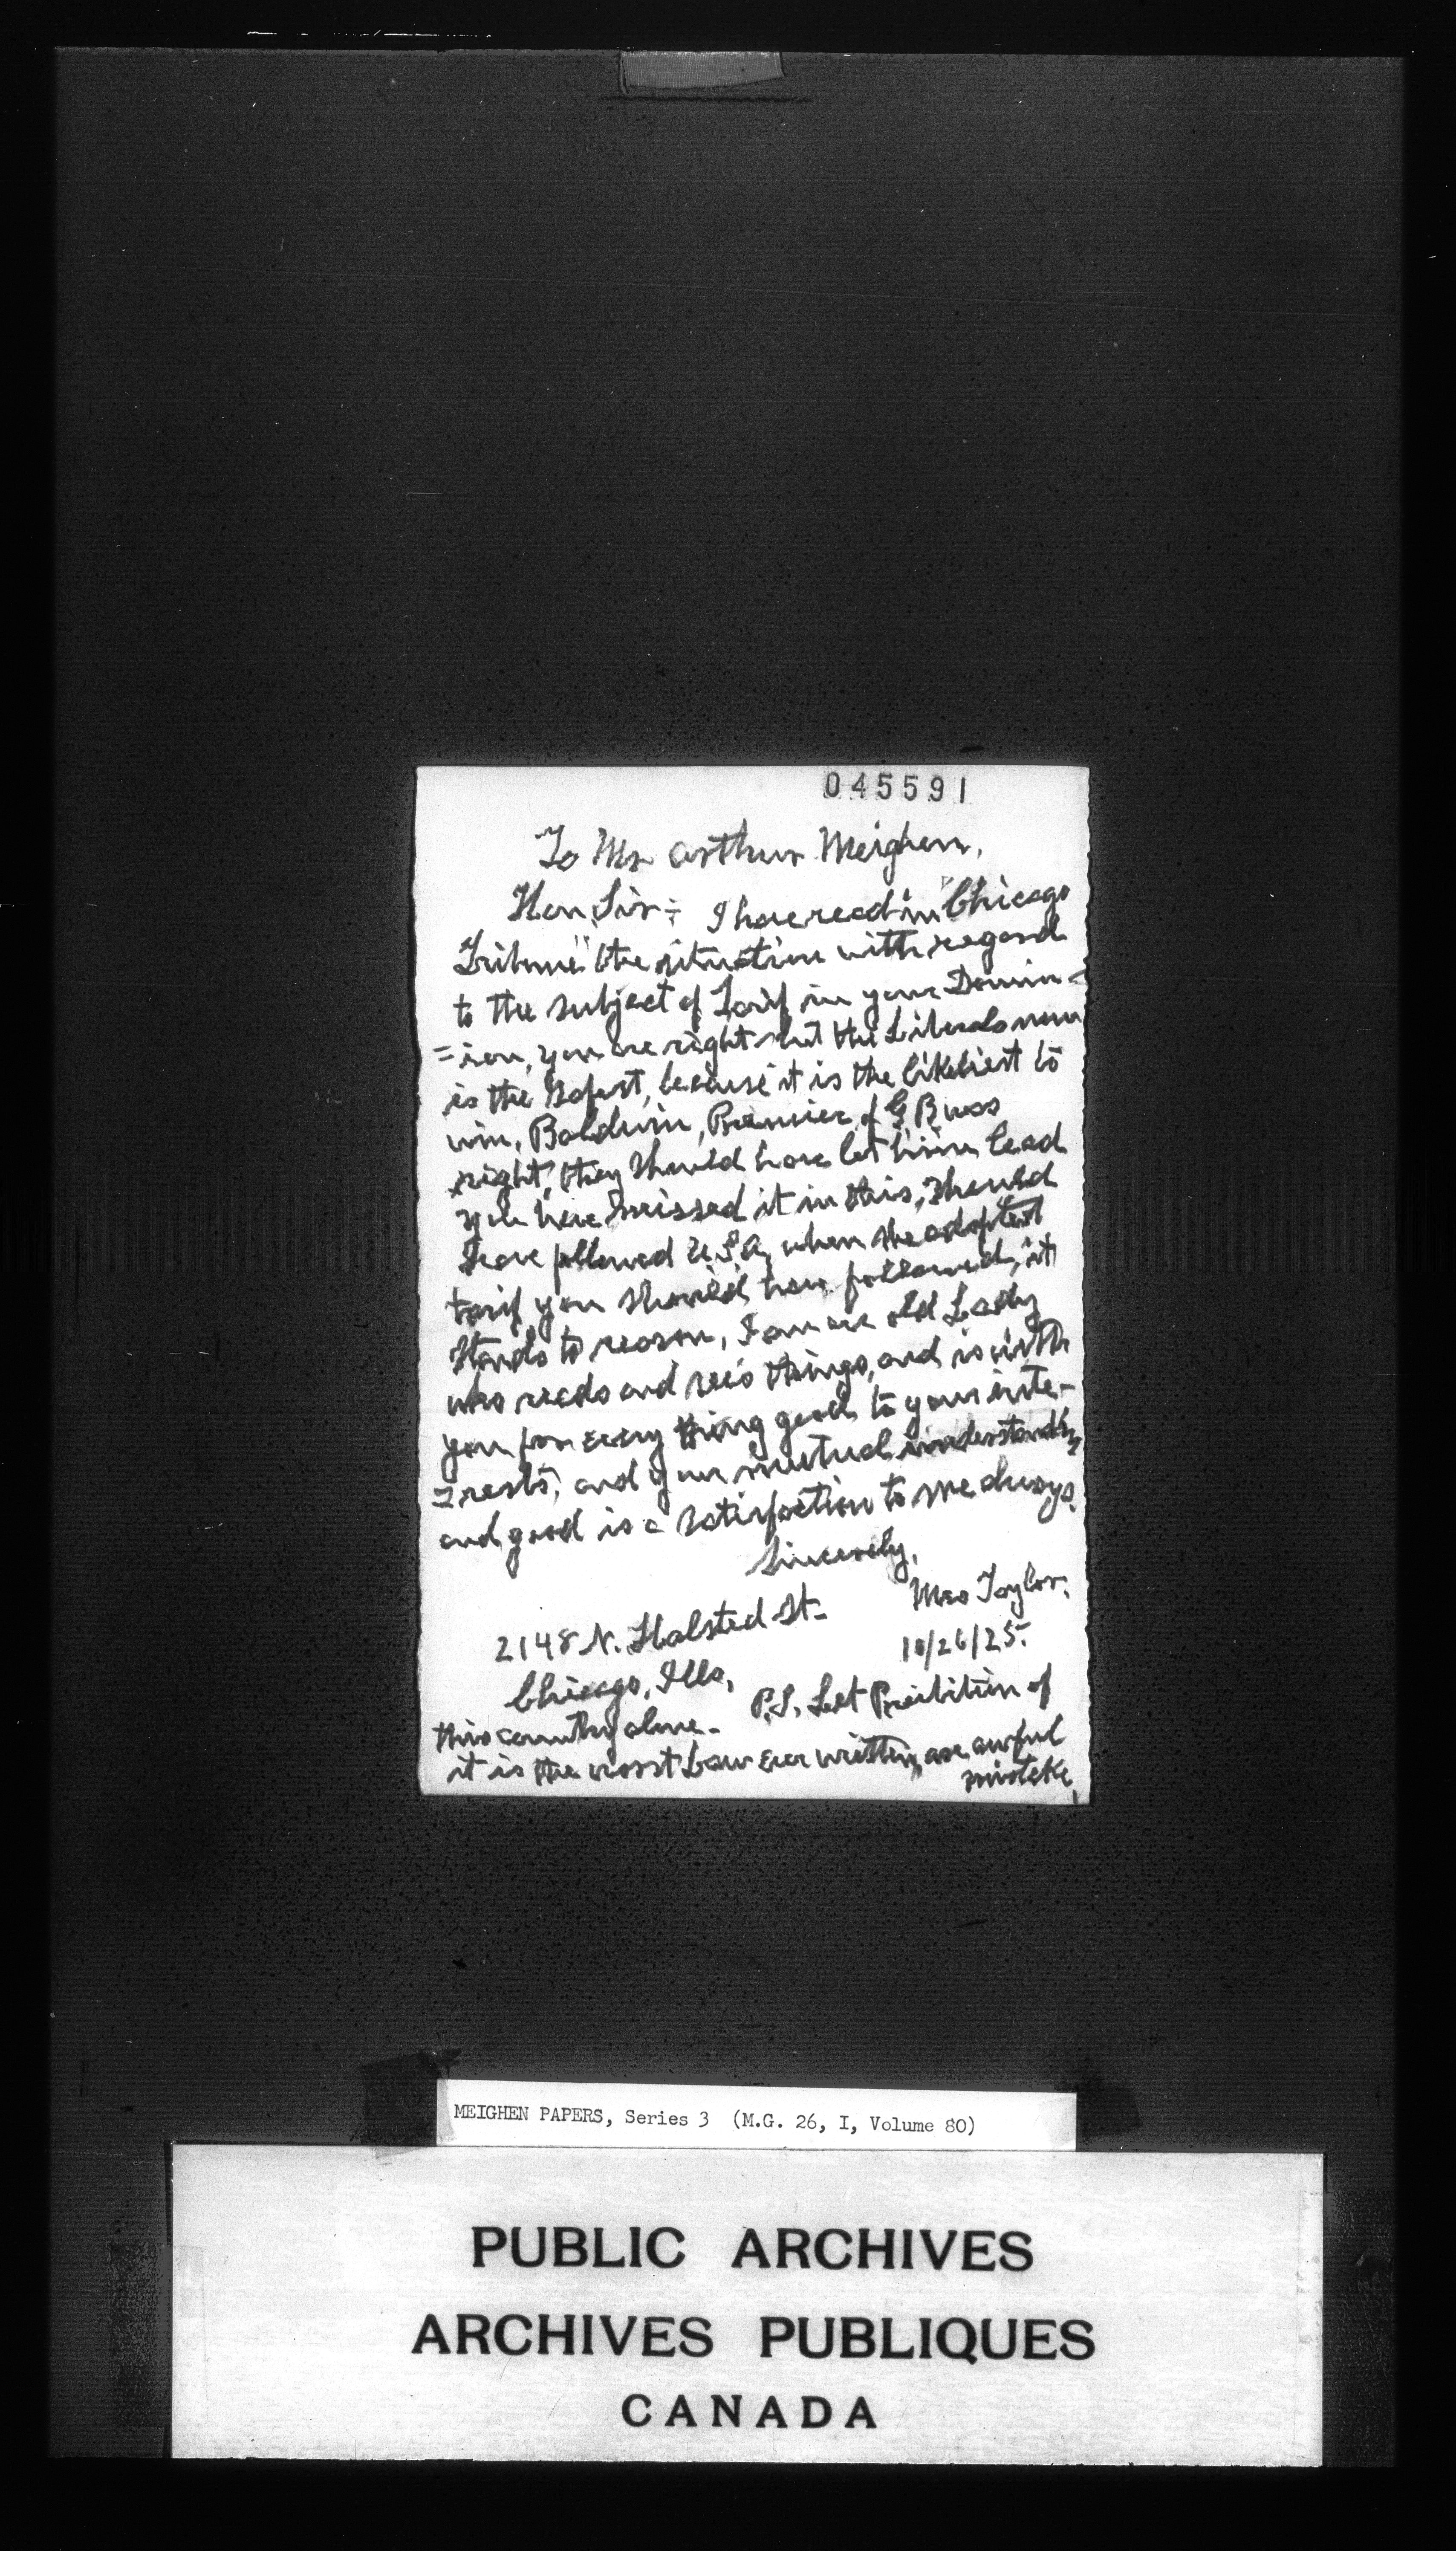 045591
To Mr Arthur Meighen,
Hon, Sir:- I have read in "Chicago
Tribune" the situation with regard
to the subject of Tarif in your Domin-
=ion, you are right but the Liberals
is the safest, because it is the likeliest to
win, Baldwin, Premier of G, B was
right, they should have let him lead
you have missed it in this, should
have followed U.S.A, when she adopted
tarif you should have followed, it
stands to reason, I am an old Lady
who reads and sees things, and is with
you for every thing good to your inte-
=rests, and your mutual understanding
and good is a satisfaction to me always.
Sincerely,
Mrs Taylor.
2148 N. Halsted St-
10/26/25.
Chicago, Ills,
P.S. Let Proibition of
this country alone-
it is the worst Law ever written, an awful
mistake
MEIGHEN PAPERS, Series 3 (M.G. 26, I, Volume 80)
PUBLIC ARCHIVES
ARCHIVES PUBLIQUES
CANADA